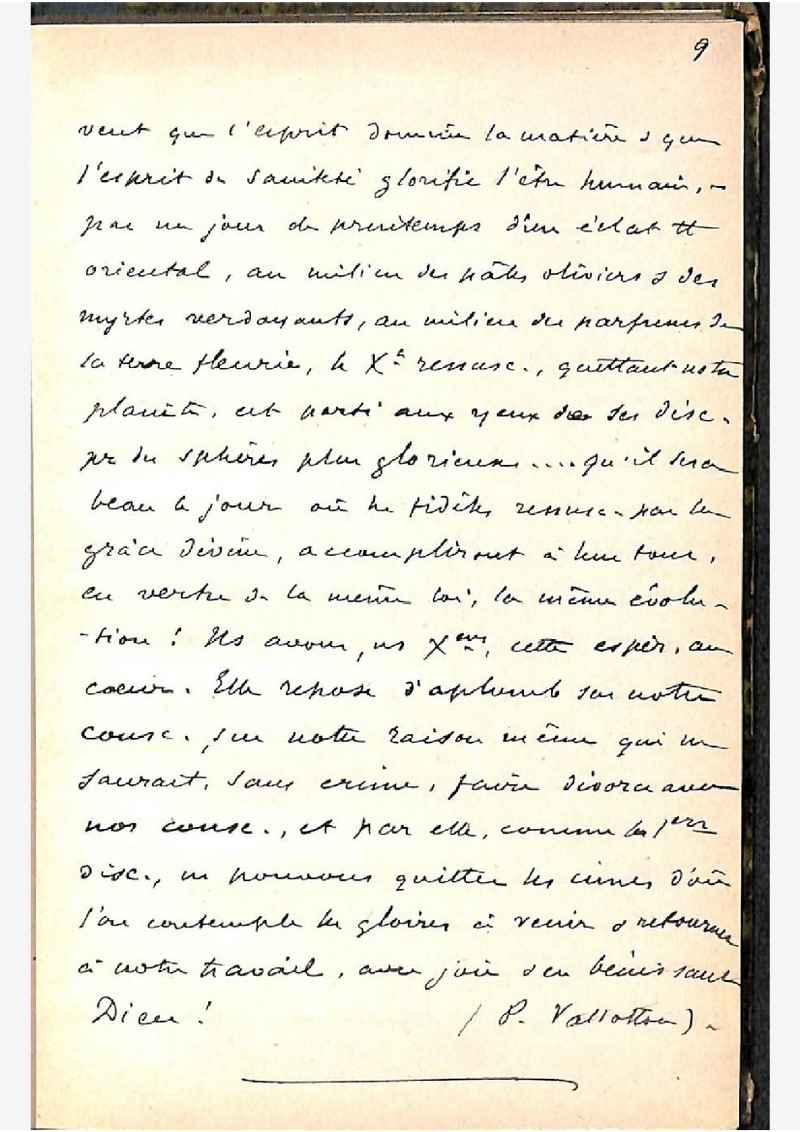 9
veut que l'esprit domine la matière & que
l'esprit de sainteté glorifie l'être humain, -
par un jour de printemps d'un éclat tt
oriental, au milieu des pâles oliviers & des
myrtes verdoyants, au milieu des parfums de
la terre fleurie, le Xt ressusc., quittant notre
planète, est parti aux yeux de ses disc.
pr des sphères plus glorieuses .... qu'il sera
beau le jour où les fidèles ressusc. par la
grâce divine, accompliront à leur tour,
en vertu de la même loi, la même évolu-
-tion! Ns avons, ns Xens, cette espér. au
coeur. Elle repose d'aplomb sur notre
consc., sur notre raison même qui ne
saurait, sans crime, faire divorce avec
nos consc., et par elle, comme les 1ers
disc., ns pouvons quitter les cimes d'où
l'on contemple les gloires à venir & retourner
à notre travail, avec joie & en bénissant
Dieu! (P. Vallotton). -